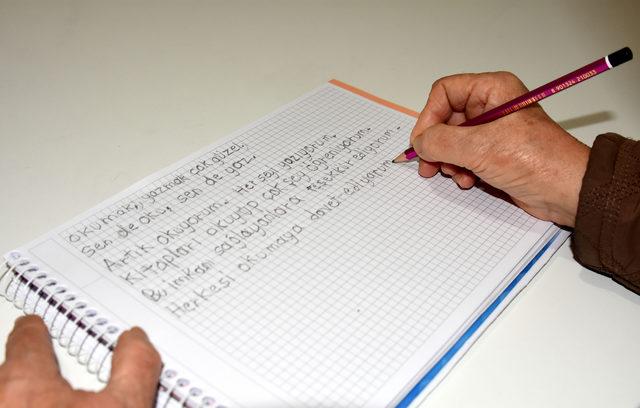 Okumak, yazmak çok güzel,
Sen de oku, sen de yaz.
Artık okuyorum. Her şey yazıyorum.
Kitapları okuyup çok şey öğreniyorum.
Bu imkanı sağlayanlara teşekkür ediyorum.
Herkesi okumaya davet ediyorum
8 901324 210033